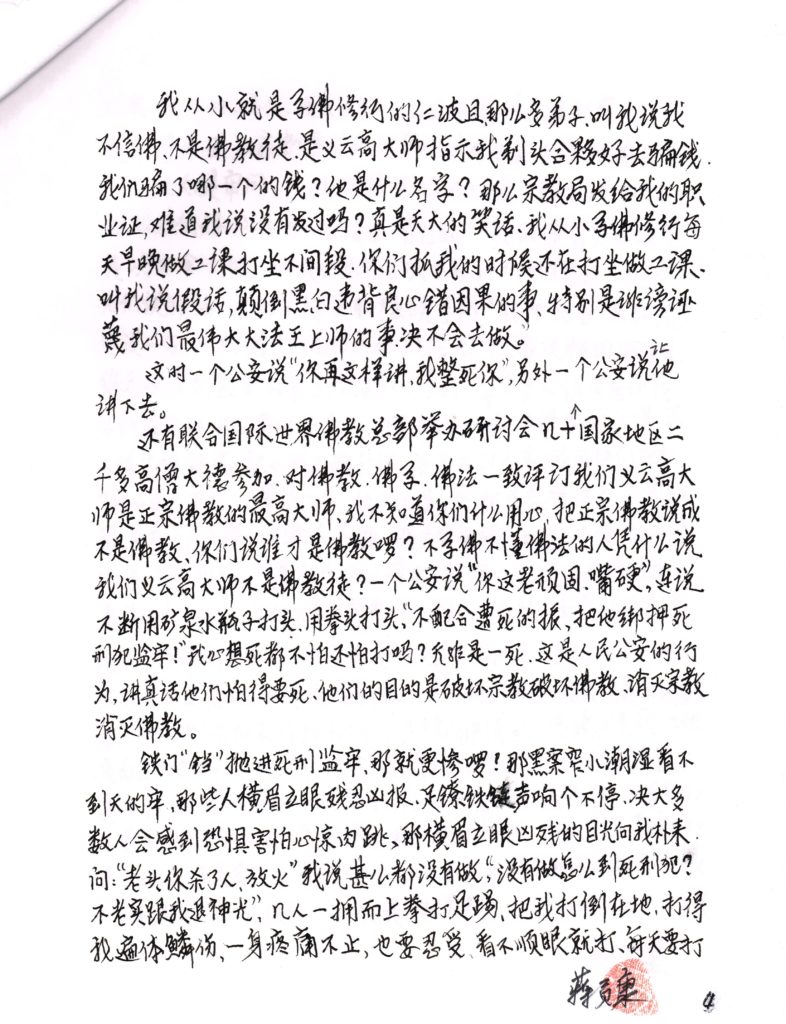 我从小就是学佛修行的仁波且那么多弟子、叫我说我
不信佛、不是佛教徒、是义云高大师指示我剃头合夥好去骗钱.
我们骗了哪一个的钱?他是什么名字?那么宗教局发给我的职
业证,难道我说没有发过吗?真是天大的笑话、我从小学佛修行每
天早晚做工课打坐不间段.你们抓我的时候还在打坐做工课、
叫我说假话,颠倒黑白违背良心错因果的事、特别是诽谤诬
蔑我们最伟大大法王上师的事决不会去做。
这时一个公安说“你再这样讲、我整死你”,另外一个公安说让他
讲下去。
还有联合国际世界佛教总部举办研讨会几十个国家地区二
千多高僧大德参加.对佛教.佛学.佛法一致评订我们义云高大
师是正宗佛教的最高大师、我不知道你们什么用心,把正宗佛教说成
不是佛教、你们说谁才是佛教啰?不学佛不懂佛法的人凭什么说
我们义云高大师不是佛教徒?一个公安说“你这老顽固、嘴硬”,连说
不断用矿泉水瓶子打头.用拳头打头,“不配合遭死的振、把他绑押死
刑犯监牢!”我心想死都不怕还怕打吗?无非是一死.这是人民公安的行
为,讲真话他们怕得要死、他们的目的是破坏宗教破坏佛教、消灭宗教
消灭佛教。
铁门“铛”抛进死刑监牢、那就更惨啰!那黑窄小潮湿看不
到天的牢,那些人横眉立眼残忍凶报、足镣铁链声响个不停、决大多
数人会感到恐惧害怕心惊肉跳、那横眉立眼凶残的目光向我扑来.
问:“老头你杀了人、放火”我说甚么都没有做,“没有做怎么到死刑犯?
不老实跟我退神光”,几人一拥而上拳打足踢、把我打倒在地,打得
我遍体鳞伤、一身疼痛不止,也要忍受、看不顺眼就打、每天要打
4